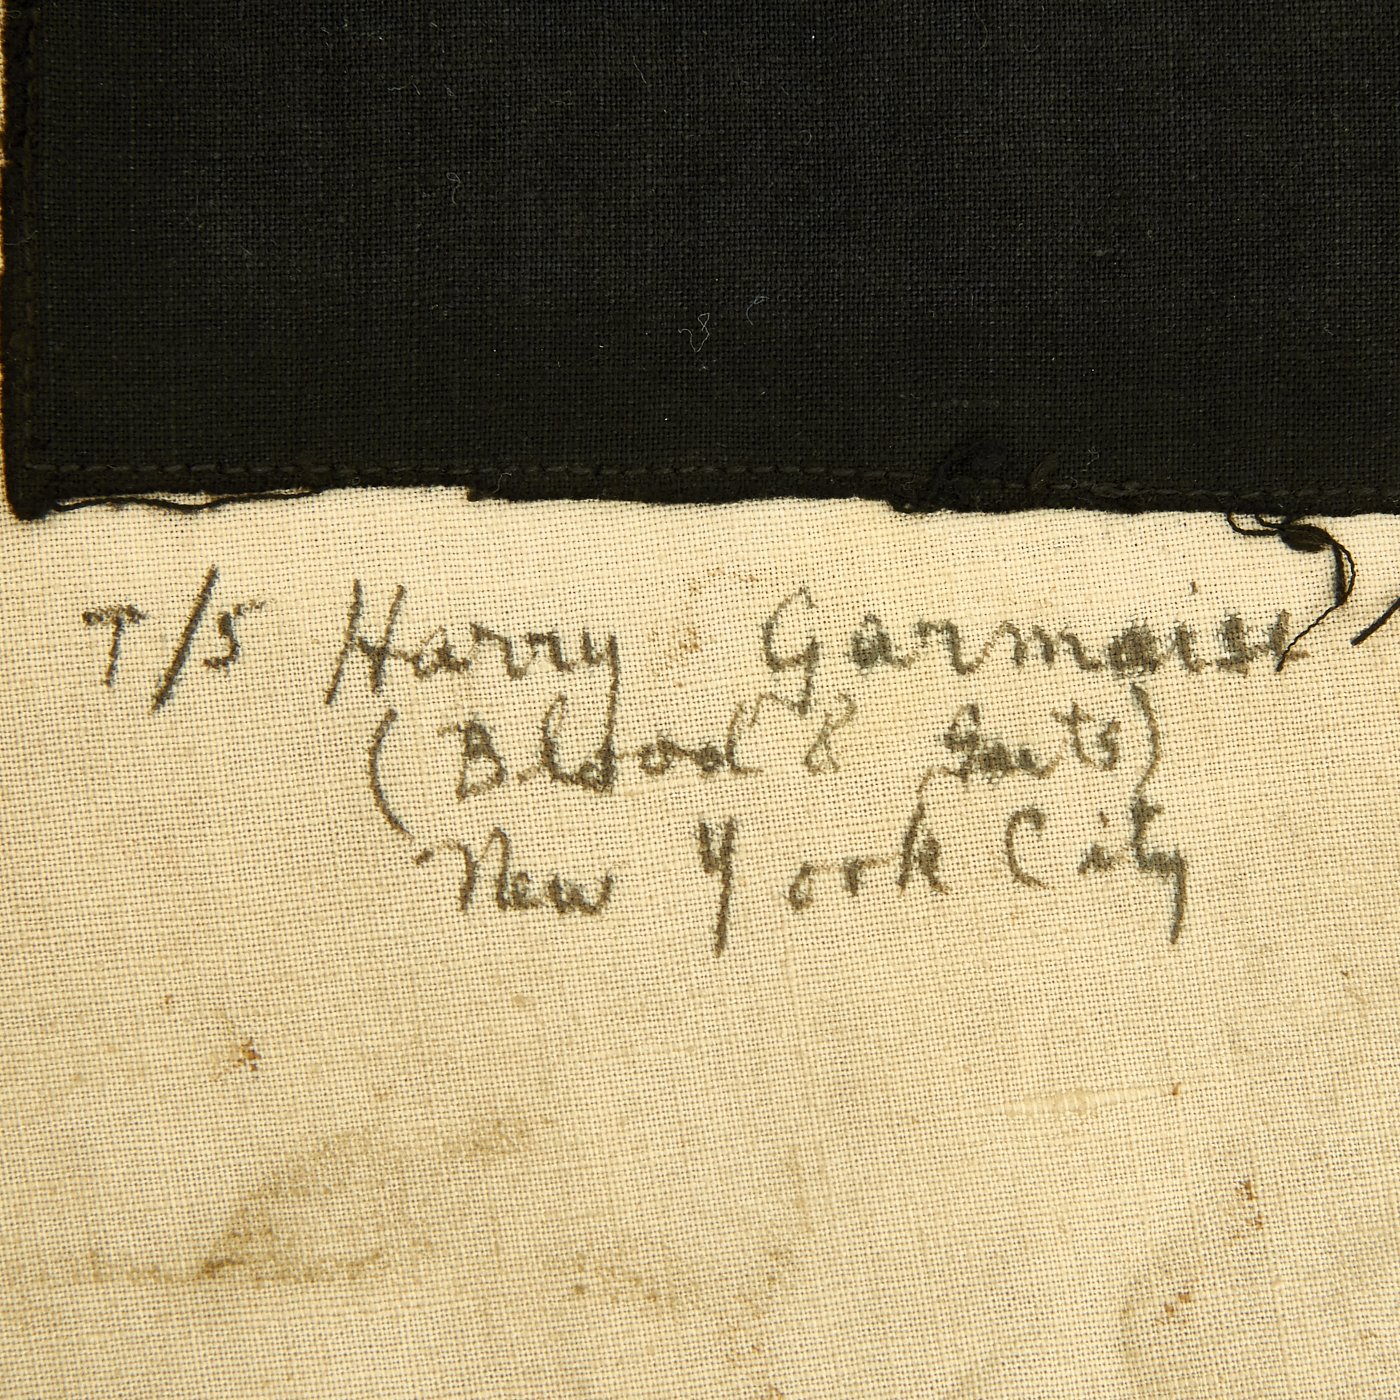 T/5 Harry Garmaise
(Blood & Guts)
New York City